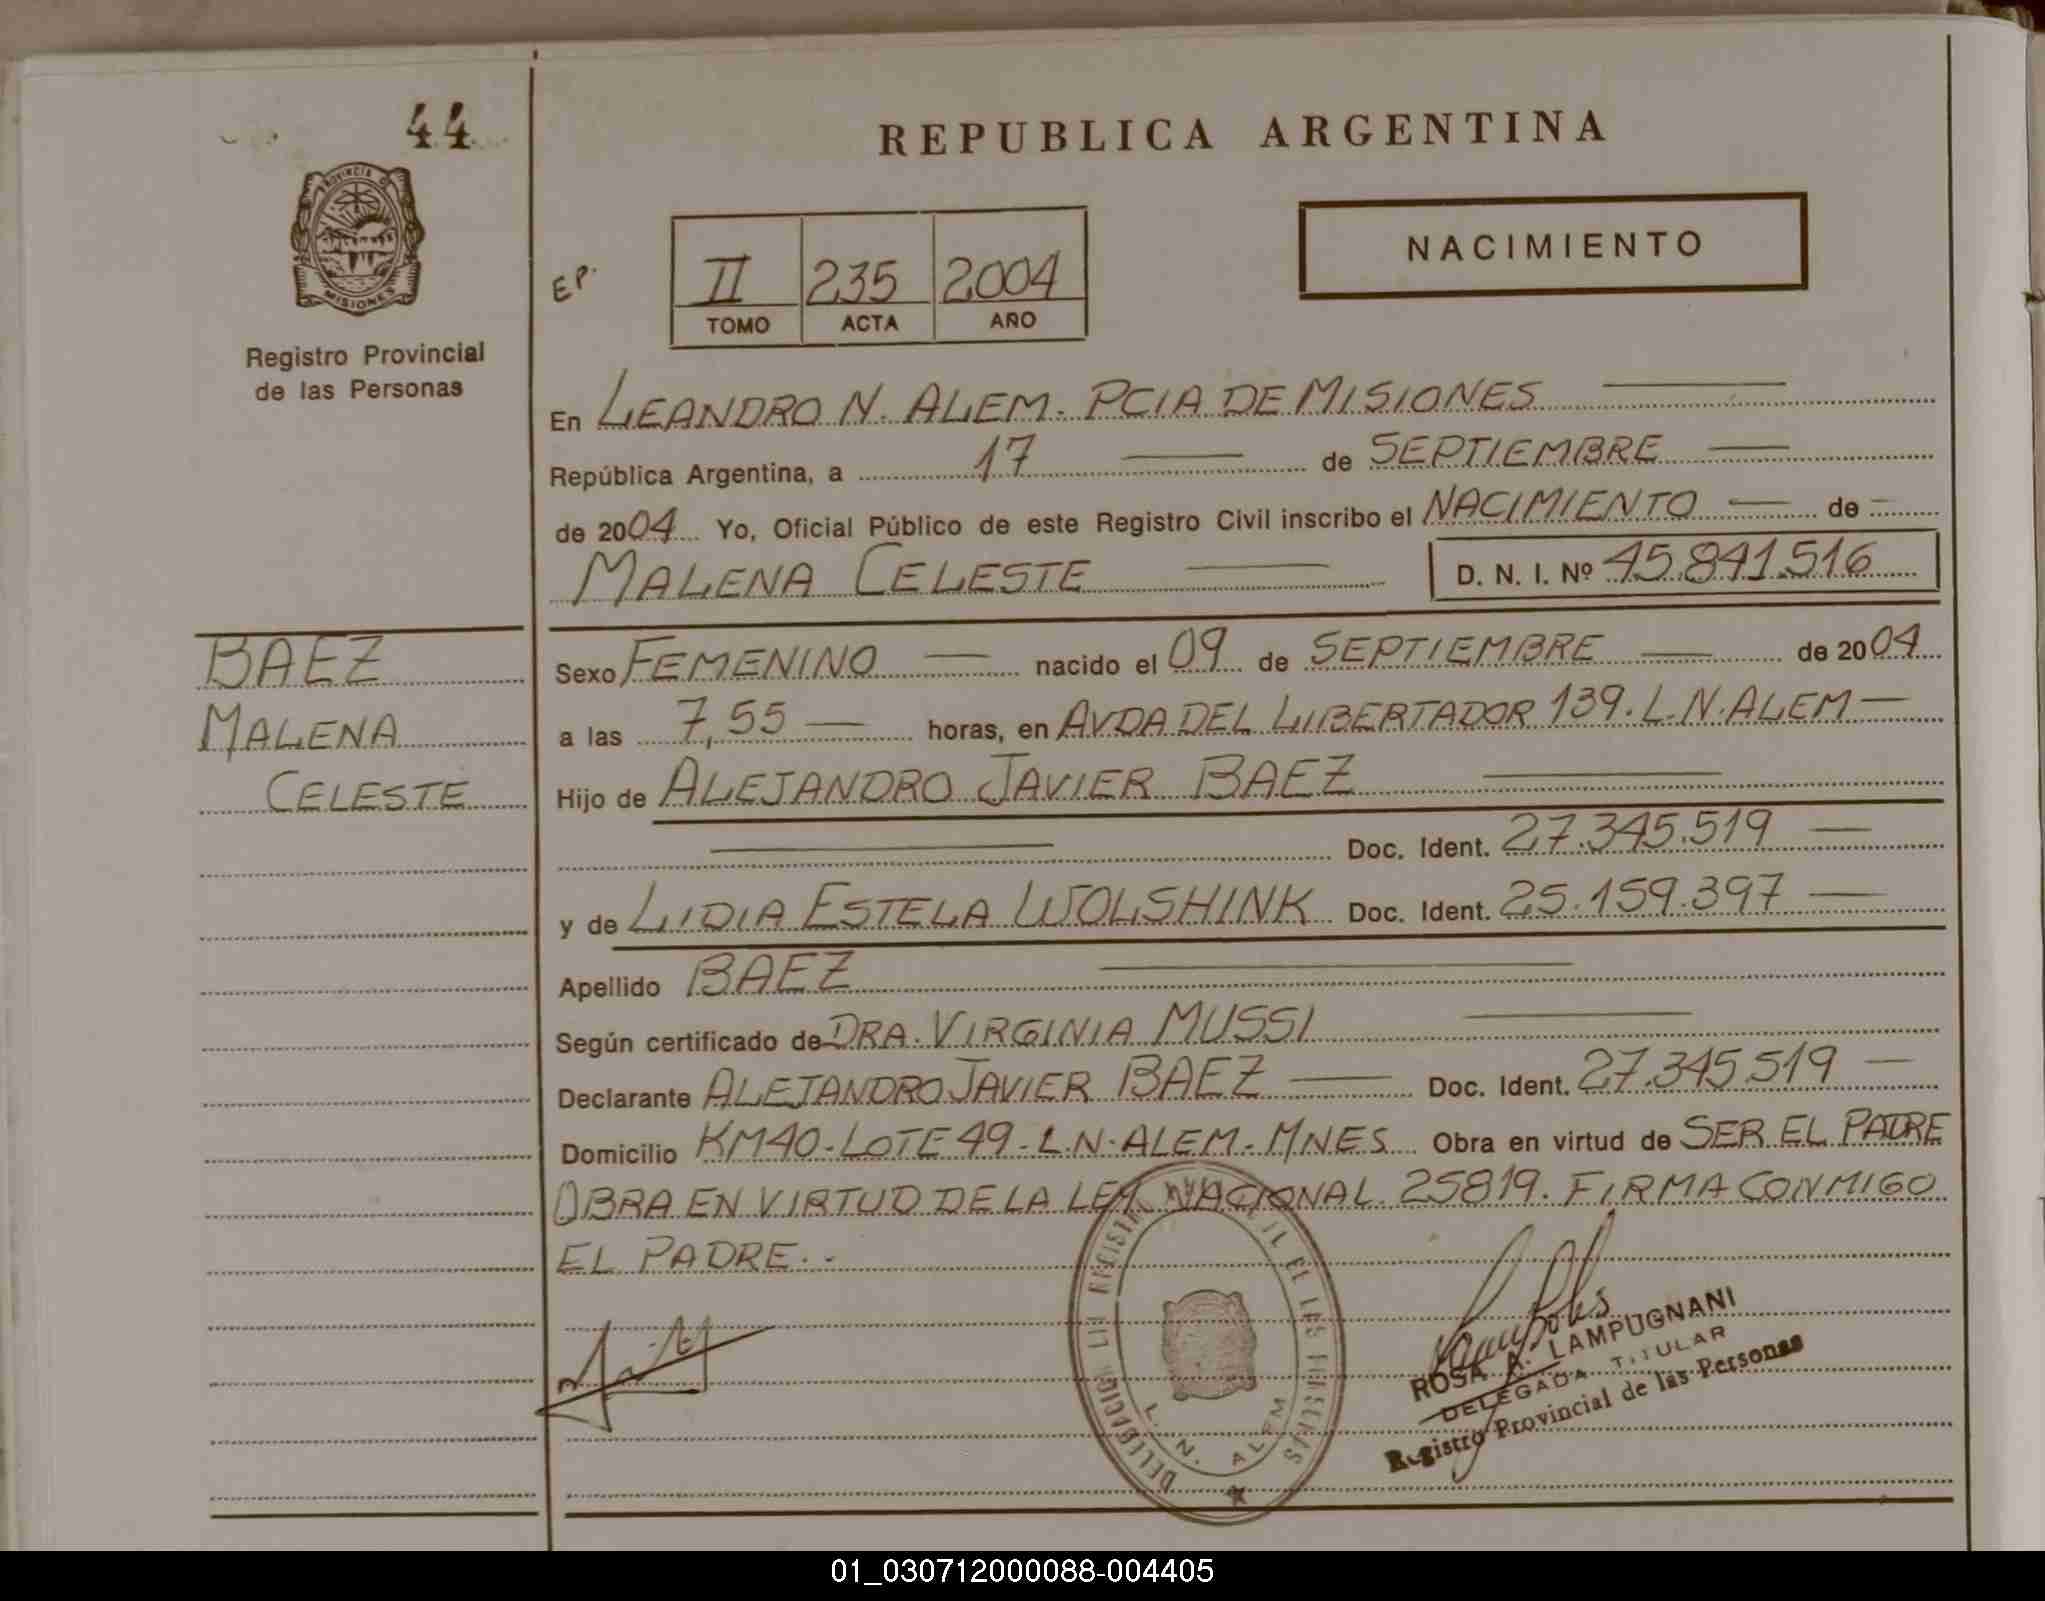 44
REPUBLICA ARGENTINA
PROVINCIA D
MISIONES
NACIMIENTO
EP.
II 235 2004
TOMO ACTA AÑO
Registro Provincial
de las Personas
En LEANDRO N. ALEM. PCIA DE MISIONES
República Argentina, a 17 de SEPTIEMBRE
de 2004 Yo, Oficial Público de este Registro Civil inscribo el NACIMIENTO de
MALENA CELESTE D. N. I. Nº 45.841.516
BAEZ
MALENA
CELESTE
Sexo FEMENINO nacido el 09 de SEPTIEMBRE de 2004
a las 7,55 horas, en AVDA DEL LIBERTADOR 139. L.N. ALEM
Hijo de ALEJANDRO JAVIER BAEZ
Doc. Ident. 27.345.519
y de LIDIA ESTELA WOLSHINK Doc. Ident. 25.159.397
Apellido BAEZ
Según certificado de DRA. VIRGINIA MUSSI
Declarante ALEJANDRO JAVIER BAEZ Doc. Ident. 27.345.519
Domicilio KM40-LOTE 49-L.N.ALEM-MNES Obra en virtud de SER EL PADRE
OBRA EN VIRTUD DE LA LEY NACIONAL 25819. FIRMA CONMIGO
EL PADRE..
L. N. ALEM
ROSA A. LAMPUGNANI
DELEGADA TITULAR
Registro Provincial de las Personas
01_030712000088-004405